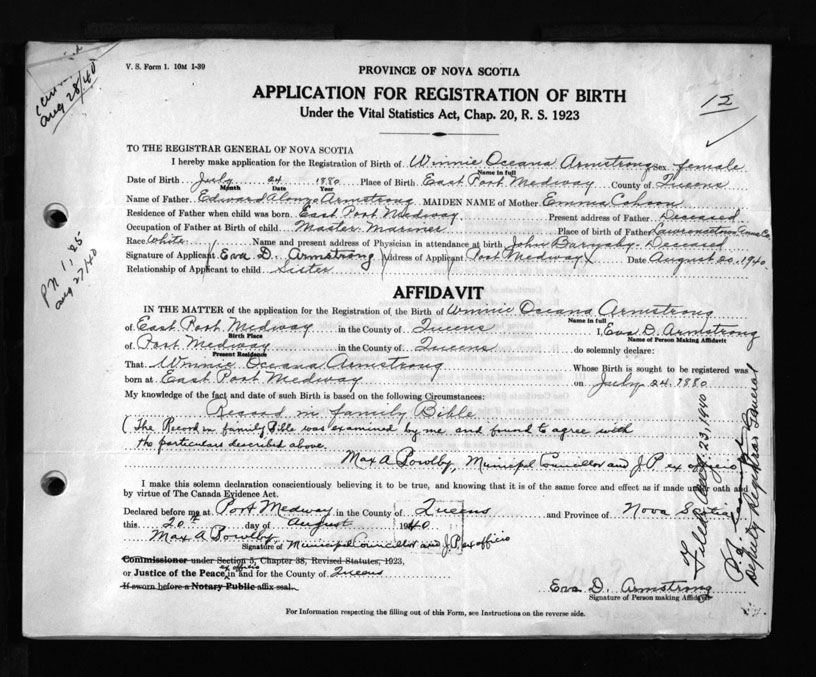 Aug 28/40
V. S. Form 1. 10M 1-39
PROVINCE OF NOVA SCOTIA
APPLICATION FOR REGISTRATION OF BIRTH
Under the Vital Statistics Act, Chap. 20, R. S. 1923
12
TO THE REGISTRAR GENERAL OF NOVA SCOTIA
I hereby make application for the Registration of Birth of Winnie Oceana Armstrong Sex female
Name in full
Date of Birth July 24 1880 Place of Birth East Port Medway County of Queens
Month Date Year
Name of Father Edward Alonzo Armstrong MAIDEN NAME of Mother Emma Cohoon
Residence of Father when child was born East Port Medway Present address of Father Deceased
Occupation of Father at Birth of child Master Mariner Place of birth of Father Lawrencetown
Race White Name and present address of Physician in attendance at birth John Barnaby - Deceased
Signature of Applicant Eva D. Armstrong Address of Applicant Port Medway Date August 20, 1940
Relationship of Applicant to child Sister
PN 1, 25
Aug 27/40
AFFIDAVIT
IN THE MATTER of the application for the Registration, of the Birth of Winnie Oceana Armstrong
Name in full
of East Port Medway in the County of Queens I, Eva D. Armstrong
Birth Place Name of Person Making Affidavit
of Port Medway in the County of Queens do solemnly declare:
Present Residence
That Winnie Oceana Armstrong Whose Birth is sought to be registered was
born at East Port Medway on July 24 1880
My knowledge of the fact and date of such Birth is based on the following Circumstances:
Record in family Bible
(The Record in family Bible was examined by me and found to agree with
the particulars described above.
Max A Bowlby, Municipal Councillor and J.P. ex officio
I make this solemn declaration conscientiously believing it to be true, and knowing that it is of the same force and effect as if made under oath and
by virtue of The Canada Evidence Act.
Declared before me at Port Medway in the County of Queens and Province of Nova Scotia
this 20th day of August 1940
Max A Bowlby
Signature of Municipal Councillor and J.P. ex officio
Commissioner under Section 5, Chapter 38, Revised Statutes, 1923,
ex officio
or Justice of the Peace in and for the County of Queens
If sworn before a Notary Public affix seal.
Eva D. Armstrong
Signature of Person making Affidavit
For Information respecting the filling out of this Form, see Instructions on the reverse side.
Filed Aug. 23, 1940
Deputy Registrar General